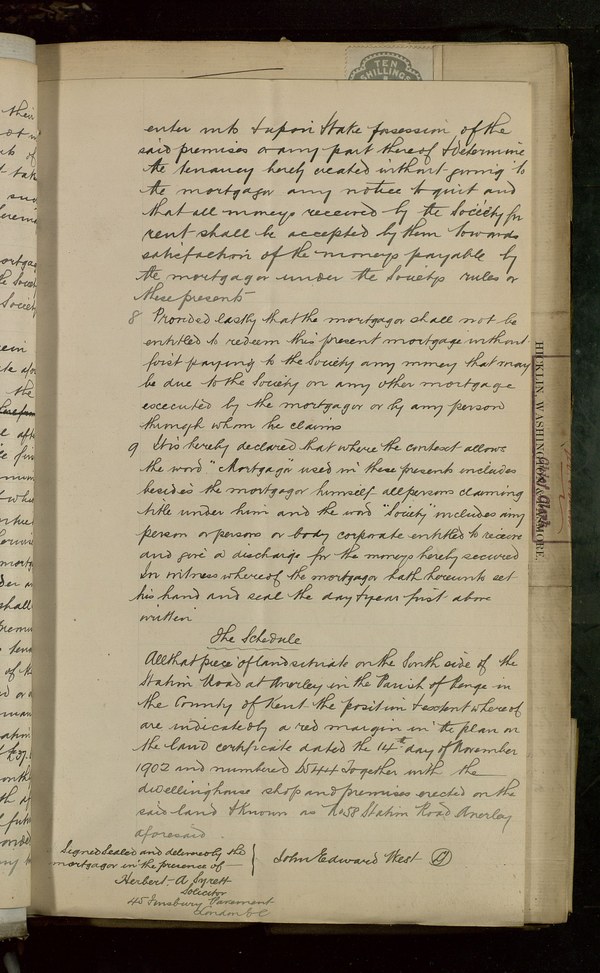 TEN
SHILLINGS
enter into & upon & take possession of the
said premises or any part thereof & determine
the tenancy hereby created without giving to
the mortgagor any notice to quit and
that all moneys received by the Society for
rent shall be accepted by them towards
satisfaction of the moneys payable by
the mortgagor under the Societys rules or
these presents
8 Provided lastly that the mortgagor shall not be
entitled to redeem this present mortgage without
first paying to the Society any money that may
be due to the Society on any other mortgage
executed by the mortgagor or by any person
through whom he claims
9 It is hereby declared that where the context allows
the word "Mortgagor" used in these presents includes
besides the mortgagor himself all persons claiming
title under him and the word "Society" includes any
person or persons or body corporate entitled to receive
and give a discharge for the moneys hereby secured
In witness whereof the mortgagor hath hereunto set
his hand and seal the day & year first above
written
The Schedule
All that piece of land situate on the South side of the
Station Road at Anerley in the Parish of Penge in
the County of Kent the position & extent whereof
are indicated by a red margin in the plan on
the land certificate dated the 14th day of November
1902 and numbered Together with the
dwellinghouse shop and premises erected on the
said land & known as No 58 Station Road Anerley
aforesaid
Signed Sealed and delivered by the
mortgagor in the presence of
John Edward West
Herbert A Syrett
Solicitor
45 Finsbury Pavement
London EC
HICKLIN, WASHINGTON & PASMORE